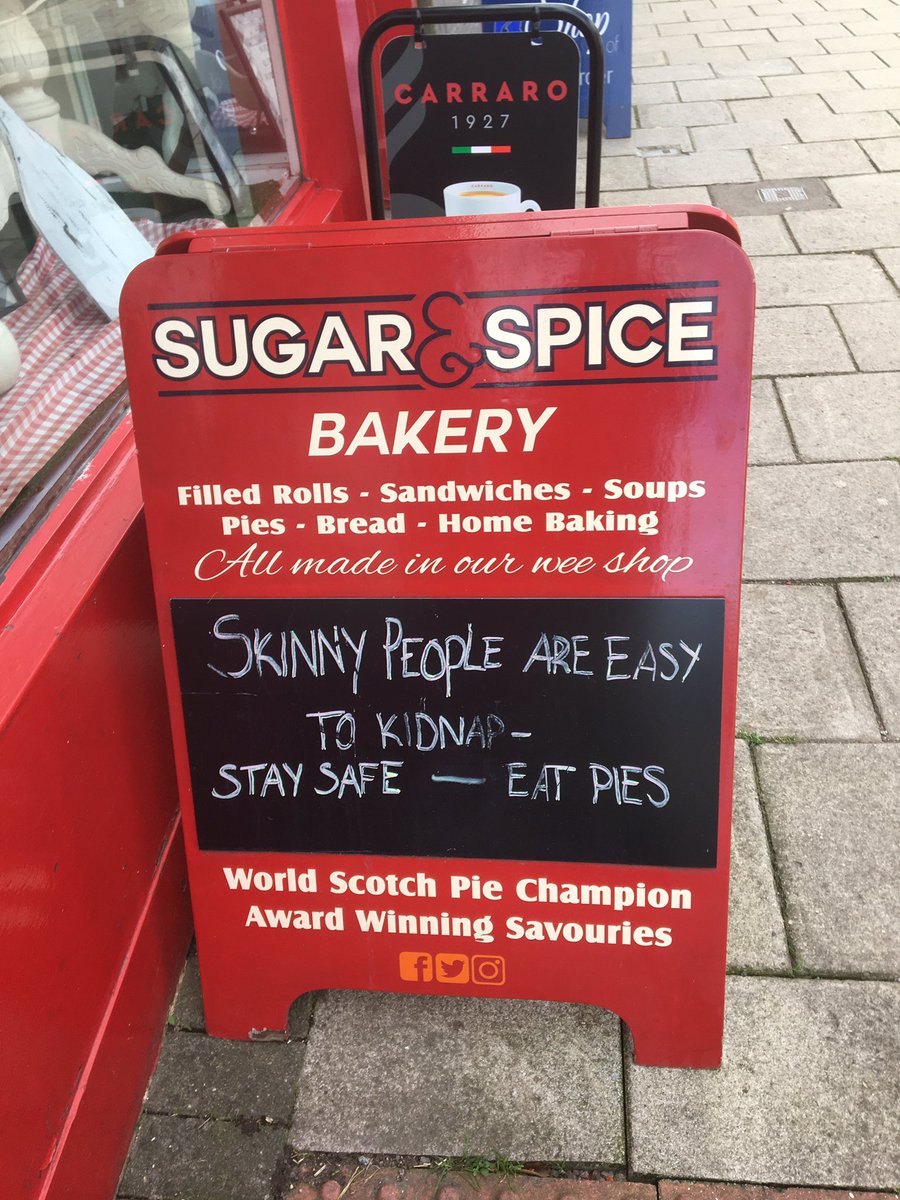 Shop
of
order
CARRARO
1927
CARRARO
SUGAR & SPICE
BAKERY
Filled Rolls - Sandwiches - Soups
Pies - Bread - Home Baking
All made in our wee shop
SKINNY PEOPLE ARE EASY
TO KIDNAP-
STAY SAFE — EAT PIES
World Scotch Pie Champion
Award Winning Savouries